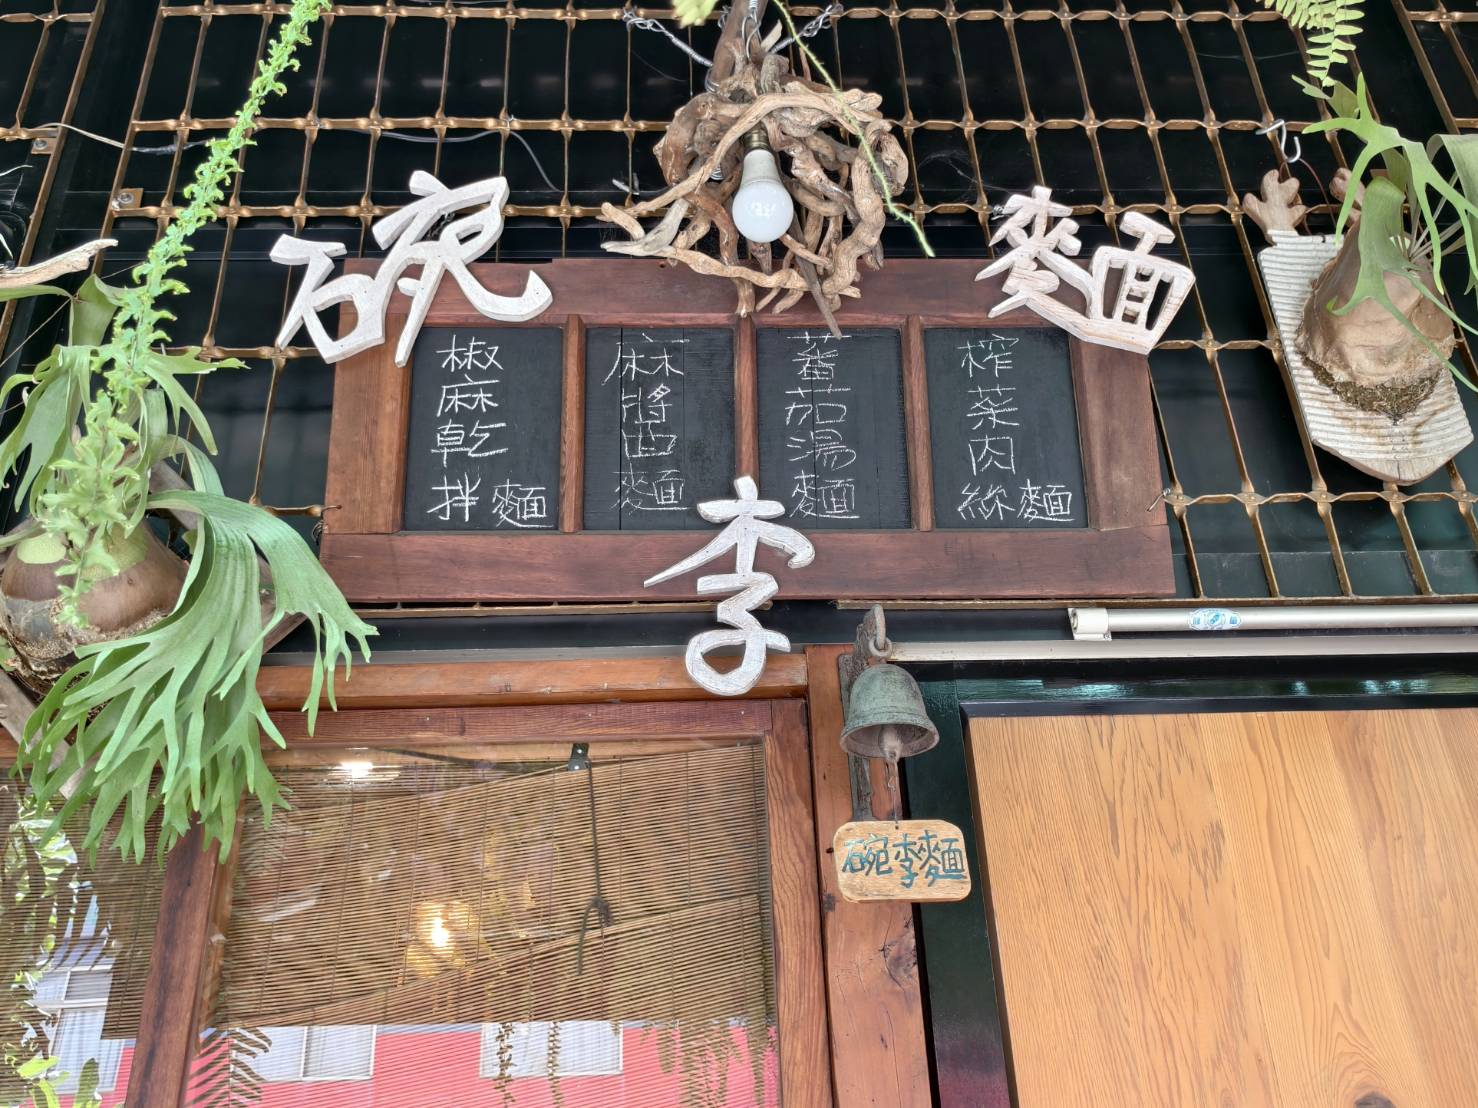 碗李麵
椒麻乾拌麵
麻醬麵
蕃茄湯麵
榨菜肉絲麵
碗李麵